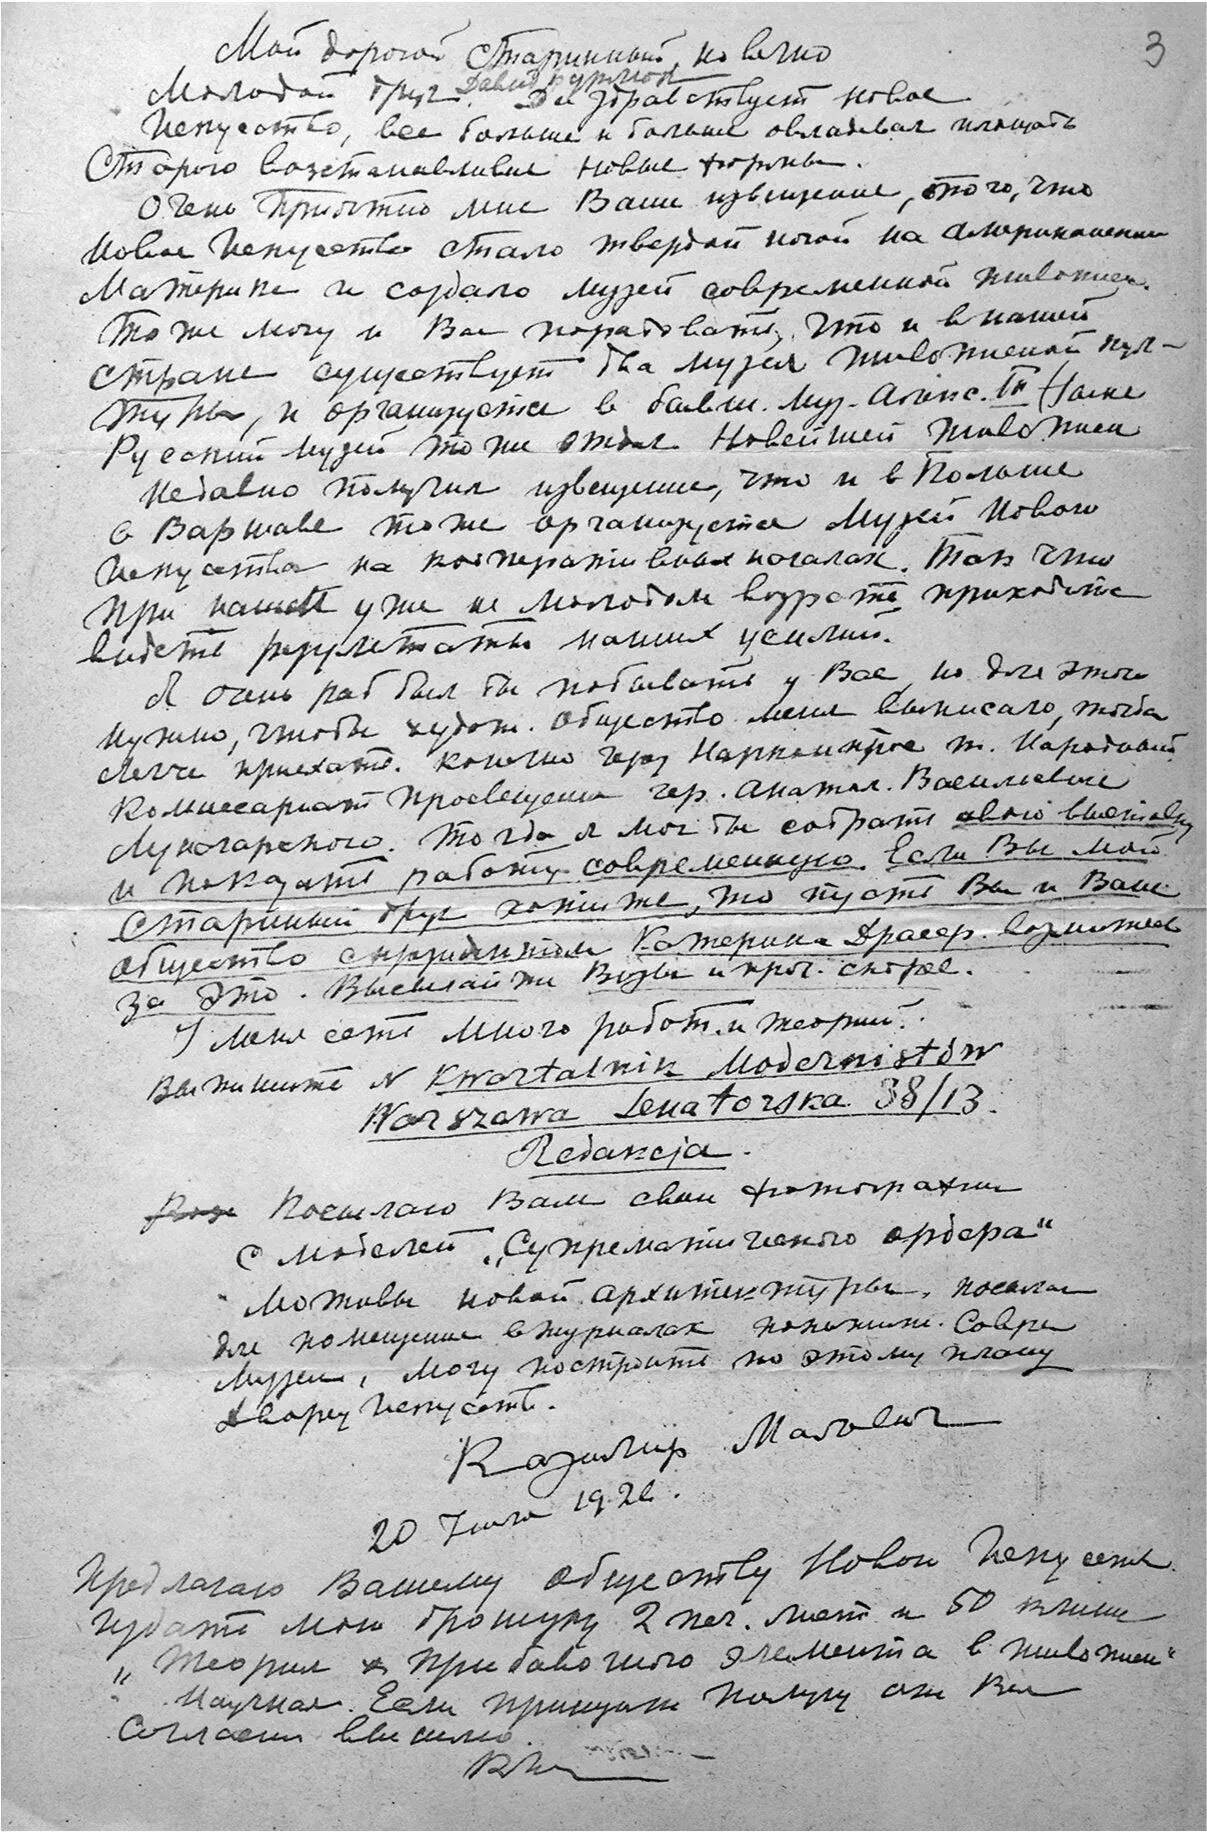 3
Мой дорогой старинный, но вечно
молодой друг Давид Бурлюк. Да здравствует новое
Искусство, все больше и больше овладевая площадь
Старого возстанавливая новые формы.
Очень приятно мне Ваше извещение, этого, что
новое Искусство стало твердой ногой на американском
Материке и создало музей современной живописи.
Тоже могу и Вас порадовать, что и в нашей
стране существует два музея живописной куль-
туры, и организуется в бывш. муз. Алекс. III
Русский музей тоже отдел Новейшей живописи
Недавно получил извещение, что и в Польше
в Варшаве тоже организуется Музей Нового
Искусства на кооперативных началах. Так что
при нашем уже не молодом возрасте приходится
видеть результаты наших усилий.
Я очень рад был бы побывать у Вас, но для этого
нужно, чтобы худож. общество меня выписало, тогда
легче приехать. конечно через Наркомпрос т. Народный
Комиссариат Просвещения чер. Анатол. Васильевича
Луначарского. Тогда я мог бы собрать свою выставку
и показать работу современную. Если Вы мой
старинный друг хотите, то пусть Вы и Ваше
общество с президентом Катерина Драер. возьметесь
за это. Высылайте Визы и проч. скорее.
У меня есть много работ и теорий.
Выпишите N Kwartalnik Modernistów
Warszawa Senatorska 38/13.
Redakcja.
Посылаю Вам свои фотографии
с моделей „Супрематического ордера“
Мотивы новой архитектуры. посылаю
для помещения в журналах. Совре
Музеи, могу построить по этому плану
Дворец Искусств.
Казимир Малевич
20 Июля 1926.
Предлагаю Вашему обществу Новои Искусств
издать мою брошуру 2 печ. лист и 50 клише
„Теория прибавочного элемента в живописи“
Научная. Если принципе получу от Вас
согласен вышлю.
КМ